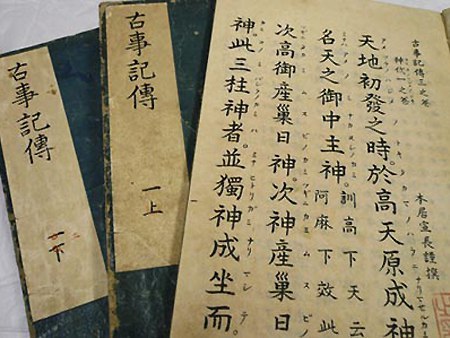 古事記傳三之巻
神代一之巻
本居宣長謹撰
天地初發之時於高天原成神
名天之御中主神訓高下天云
阿麻下效此
次高御産巣日神次神産巣日
神此三柱神者並獨神成坐而
古事記傳
一上
古事記傳
一下